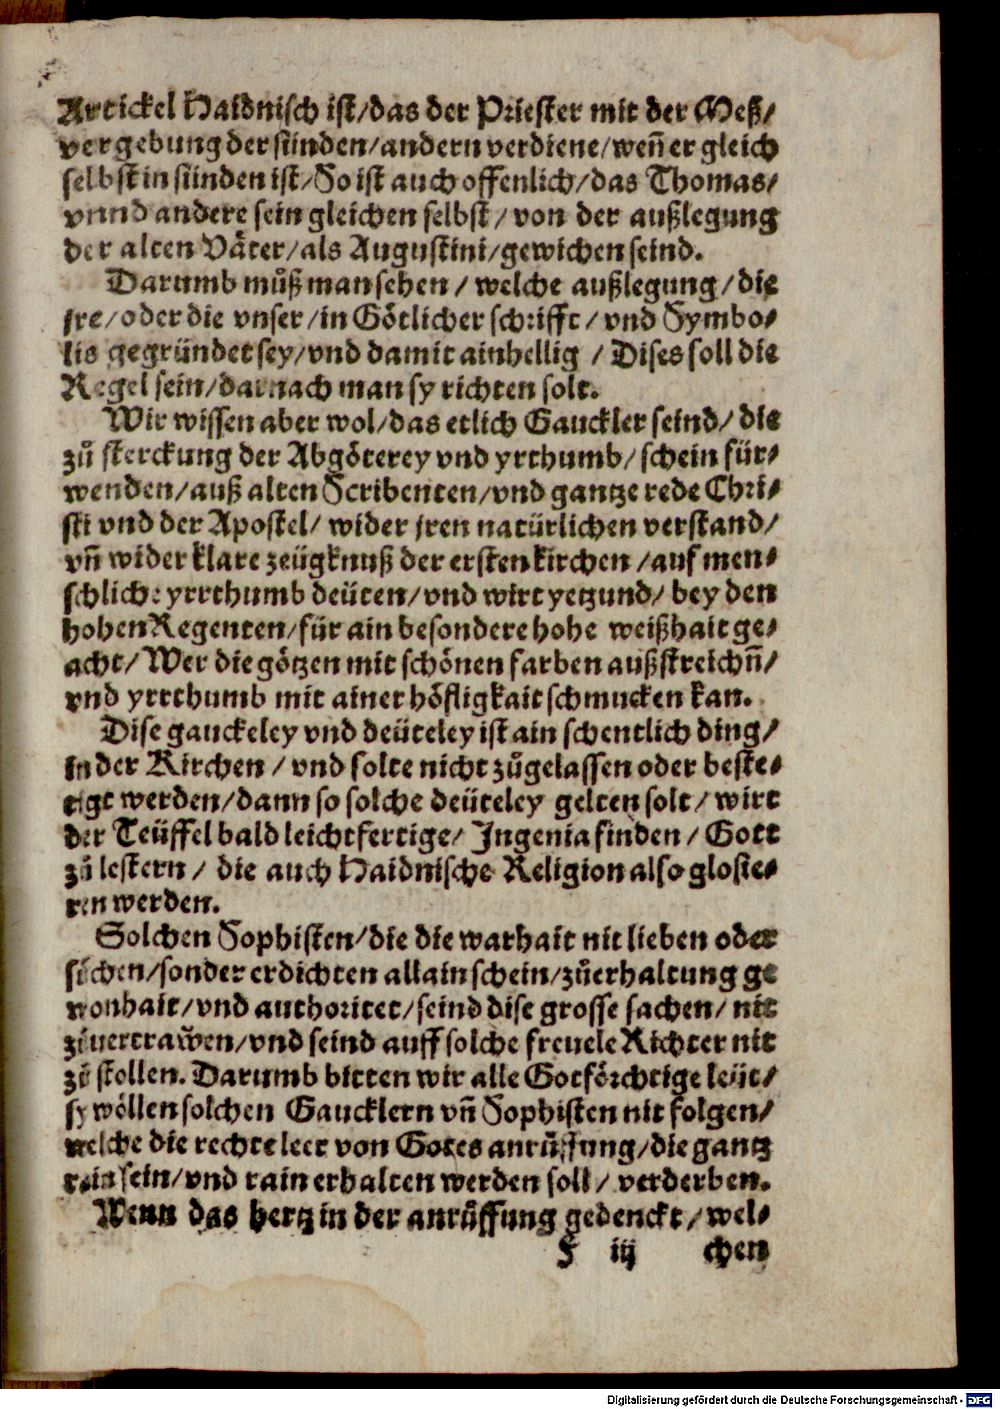 Artickel Haidnisch ist/das der Priester mit der Meß/
vergebung der sünden/andern verdiene/weñ er gleich
selbst in sünden ist/So ist auch offenlich/das Thomas/
vnnd andere sein gleichen selbst/von der außlegung
der alten Väter/als Augustini/gewichen seind.
Darumb můß man sehen/welche außlegung/die
jre/oder die vnser/in Götlicher schrifft/vnd Symbo⸗
lis gegründet sey/vnd damit ainhellig/Dises soll die
Regel sein/darnach man sy richten solt.
Wir wissen aber wol/das etlich Gauckler seind/die
zů sterckung der Abgöterey vnd yrthumb/schein für⸗
wenden/auß alten Scribenten/vnd gantze rede Chri⸗
sti vnd der Apostel/wider jren natürlichen verstand/
vñ wider klare zeügknuß der ersten kirchen/auf men⸗
schliche yrrthumb deüten/vnd wirt yetzund/bey den
hohen Regenten/für ain besondere hohe weißhait ge⸗
acht/Wer die götzen mit schönen farben außstreichñ/
vnd yrrthumb mit ainer höfligkait schmucken kan.
Dise gauckeley vnd deüteley ist ain schentlich ding/
in der Kirchen/vnd solte nicht zůgelassen oder beste⸗
tigt werden/dann so solche deüteley gelten solt/wirt
der Teüffel bald leichtfertige/Ingenia finden/Gott
zů lestern/die auch Haidnische Religion also glosie⸗
ren werden.
Solchen Sophisten/die die warhait nit lieben oder
sůchen/sonder erdichten allain schein/zů erhaltung ge
wonhait/vnd authoritet/seind dise grosse sachen/nit
zůuertrawen/vnd seind auff solche freuele Richter nit
zů stollen. Darumb bitten wir alle Gotförchtige leüt/
sy wöllen solchen Gaucklern vñ Sophisten nit folgen/
welche die rechte leer von Gotes anrůffung/die gantz
rain sein/vnd rain erhalten werden soll/verderben.
Wenn das hertz in der anrůffung gedenckt/wel⸗
F iij chen
Digitalisierung gefördert durch die Deutsche Forschungsgemeinschaft - DFG